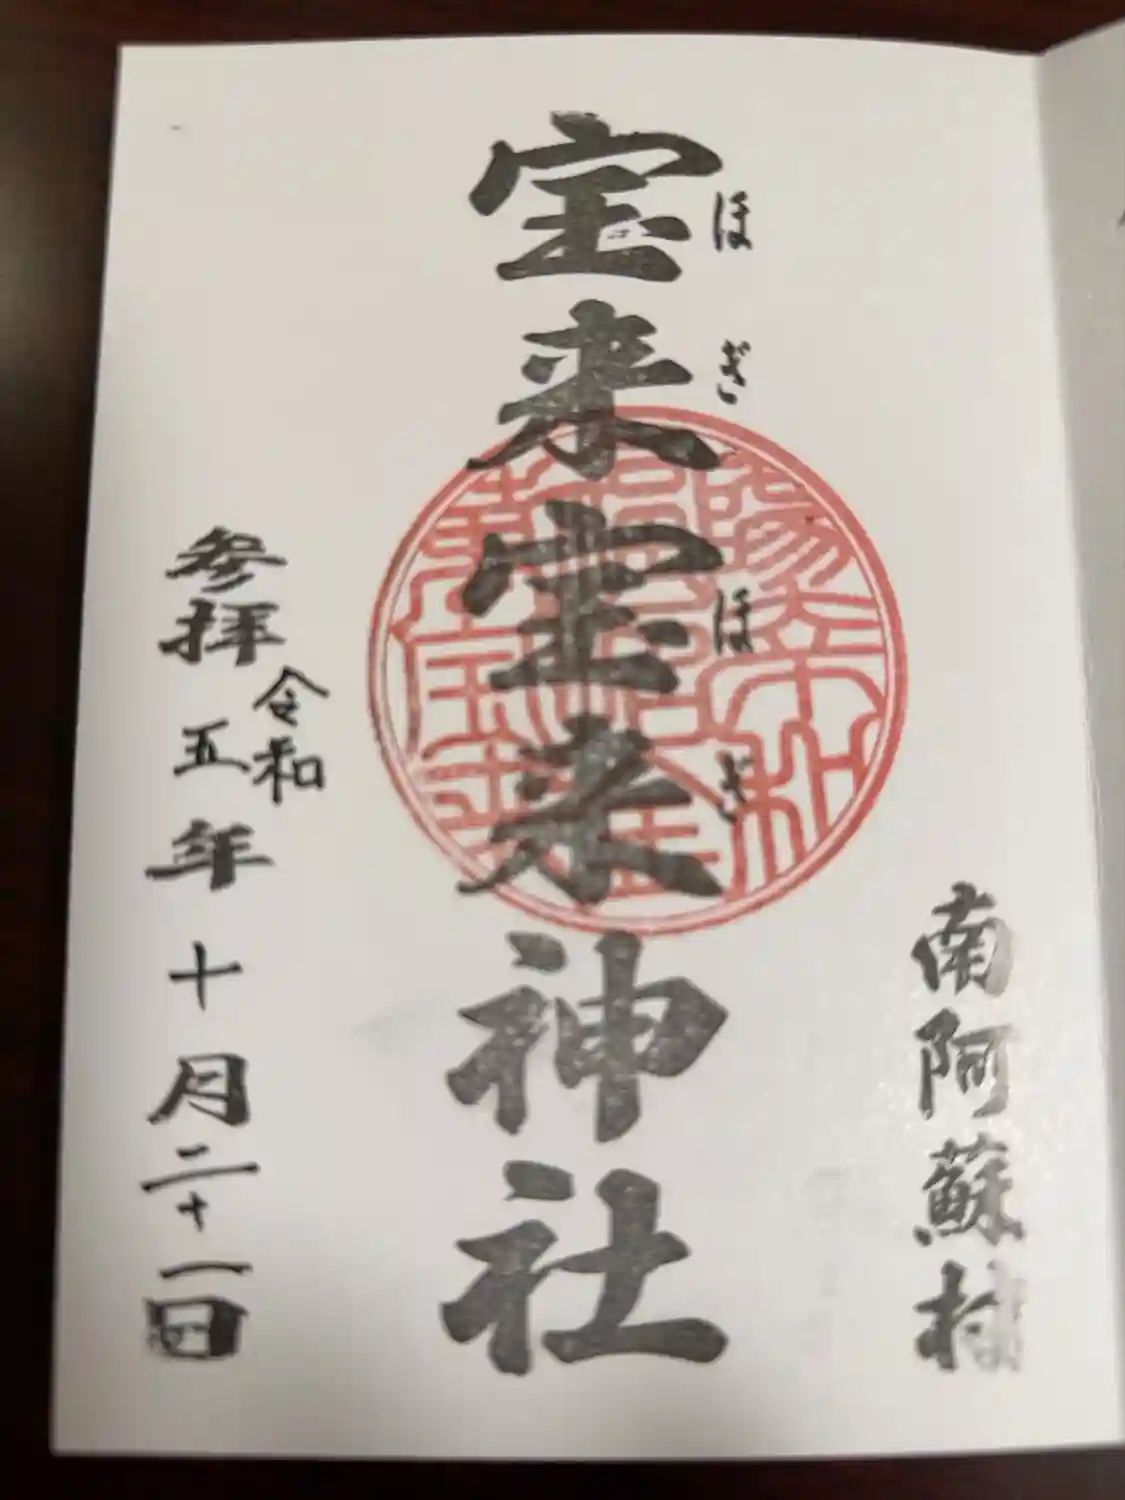 南阿蘇村
宝来宝来神社
ほぎほぎ
令和
参拝 五年十月二十一日